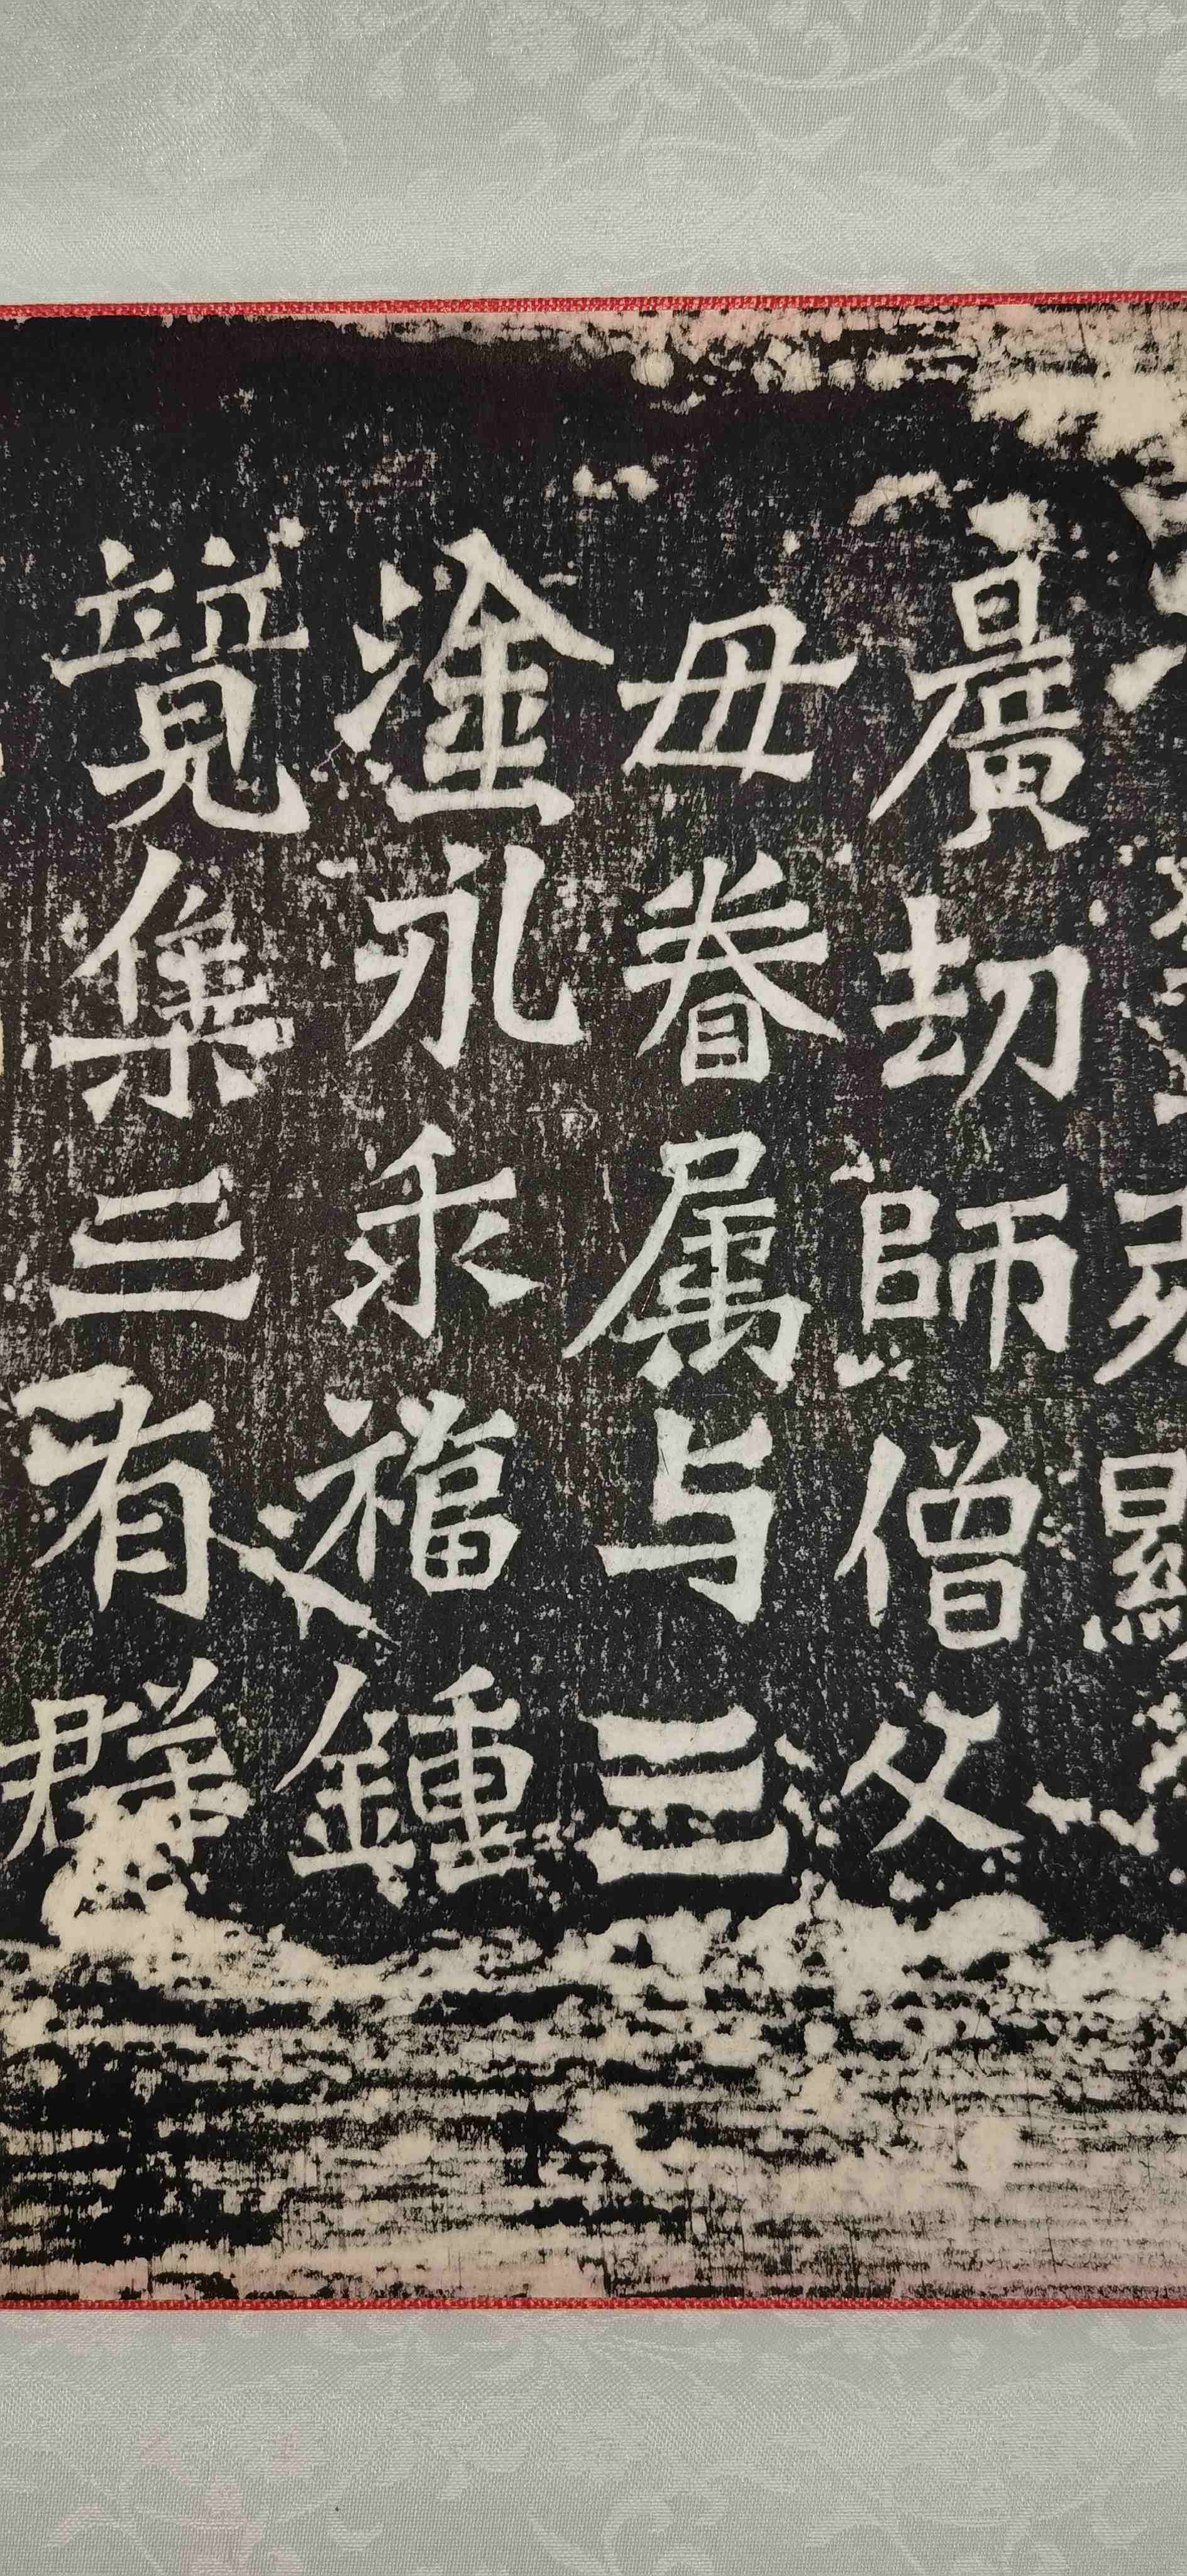 曠劫師僧父
母眷属与三
塗永乖福鍾
競集三有群